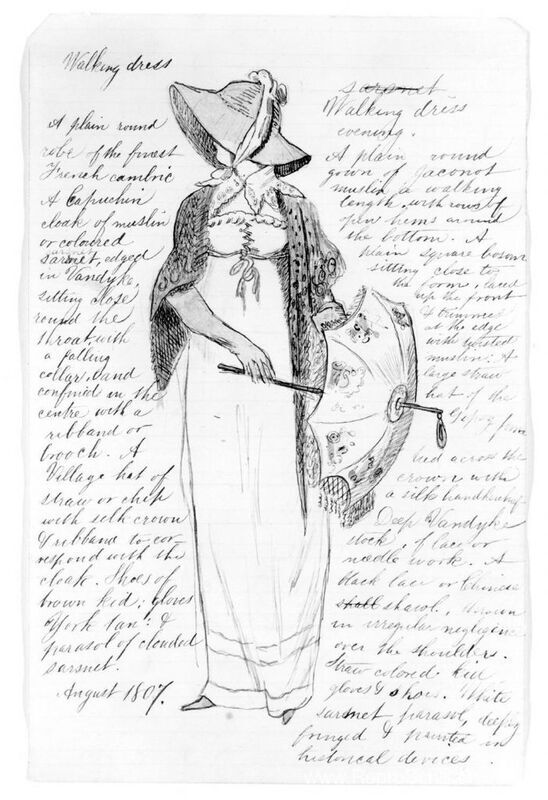 Walking dress
A plain round
robe of the finest
French cambric
A Capuchin
cloak of muslin
or coloured
sarsnet, edged
in Vandyke,
sitting close
round the
throat, with
a falling
collar, and
confined in the
centre with a
ribband or
brooch. A
Village hat of
straw or chip
with silk crown
& ribband to cor-
respond with the
cloak. Shoes of
brown kid; gloves
York tan; &
parasol of clouded
sarsnet.
August 1807.
sarsnet
Walking dress
evening.
A plain round
gown of Jaconot
muslin, a walking
length, with rows of
open hems around
the bottom. A
plain square bosom
sitting close to
the form, laced
up the front
& trimmed
at the edge
with twisted
muslin. A
large straw
hat of the
Gipsy form
tied across the
crown with
a silk handkerchief
Deep Vandyke
stock, of lace or
needle work. A
black lace or Chinese
shall shawl, thrown
in irregular negligence
over the shoulders.
Straw colored kid
gloves & shoes. White
sarsnet parasol, deeply
fringed & painted in
historical devices.